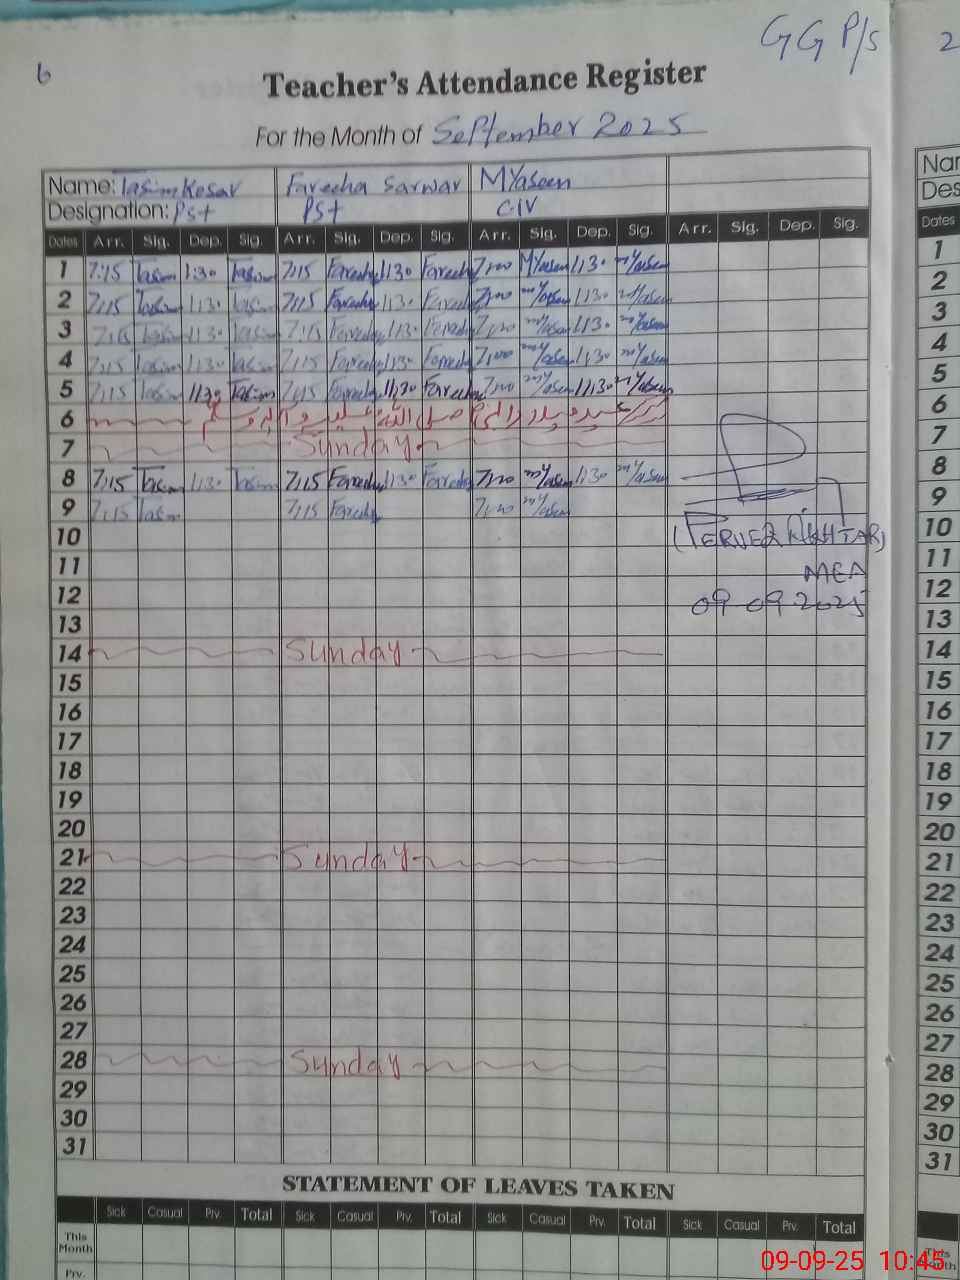 6
GG P/S
2
Teacher's Attendance Register
For the Month of September 2025
Name: Tasim Kosar Fareeha Sarwar M Yaseen
Designation: Pst Pst C-IV
Dates Arr. Sig. Dep. Sig. Arr. Sig. Dep. Sig. Arr. Sig. Dep. Sig. Arr. Sig. Dep. Sig.
1 7:15 Tasim 1:30 Tasim 7:15 Fareeha 1:30 Fareeha 7:00 M Yaseen 1:30 M Yaseen
2 7:15 Tasim 1:30 Tasim 7:15 Fareeha 1:30 Fareeha 7:00 M Yaseen 1:30 M Yaseen
3 7:15 Tasim 1:30 Tasim 7:15 Fareeha 1:30 Fareeha 7:00 M Yaseen 1:30 M Yaseen
4 7:15 Tasim 1:30 Tasim 7:15 Fareeha 1:30 Fareeha 7:00 M Yaseen 1:30 M Yaseen
5 7:15 Tasim 1:30 Tasim 7:15 Fareeha 1:30 Fareeha 7:00 M Yaseen 1:30 M Yaseen
6 عید میلاد النبی صلی اللہ علیہ و آلہ وسلم
7 Sunday
8 7:15 Tasim 1:30 Tasim 7:15 Fareeha 1:30 Fareeha 7:00 M Yaseen 1:30 M Yaseen
9 7:15 Tasim 7:15 Fareeha 7:00 M Yaseen
10 (PERVEZ AKHTAR)
11 MEA
12 09-09-2025
13
14 Sunday
15
16
17
18
19
20
21 Sunday
22
23
24
25
26
27
28 Sunday
29
30
31
STATEMENT OF LEAVES TAKEN
Sick Casual Prv. Total Sick Casual Prv. Total Sick Casual Prv. Total Sick Casual Prv. Total
This Month
Prv.
Nar
Des
Dates
1
2
3
4
5
6
7
8
9
10
11
12
13
14
15
16
17
18
19
20
21
22
23
24
25
26
27
28
29
30
31
This
Month
09-09-25 10:45